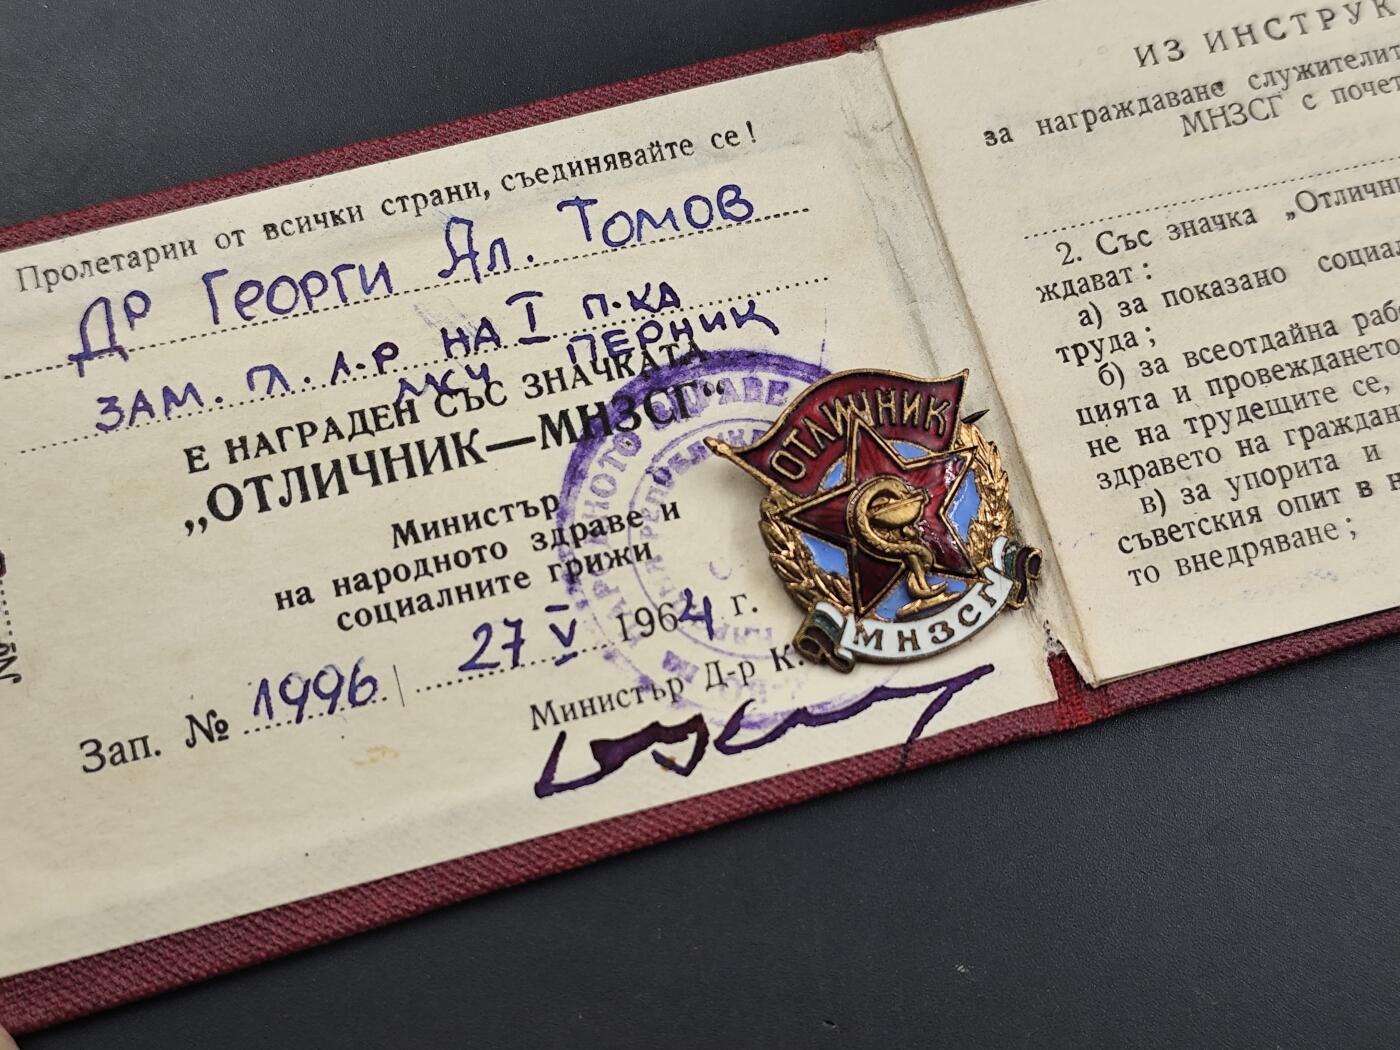 Пролетарии от всички страни, съединявайте се!
Др Георги Ал. Томов
зам. гл. л-р на I п-ка
МКЧ Перник
Е НАГРАДЕН СЪС ЗНАЧКАТА
„ОТЛИЧНИК—МНЗСГ“
Министър
на народното здраве и
социалните грижи
Зап. № 1996 27 V 1964 г.
Министър Д-р К.
№
ОТЛИЧНИК
МНЗСГ
ИЗ ИНСТРУК
за награждаване служителит
МНЗСГ с почет
2. Със значка „Отлични
ждават:
а) за показано социал
труда;
б) за всеотдайна рабо
цията и провеждането
не на трудещите се,
здравето на граждан
в) за упорита и
съветския опит в н
то внедряване;